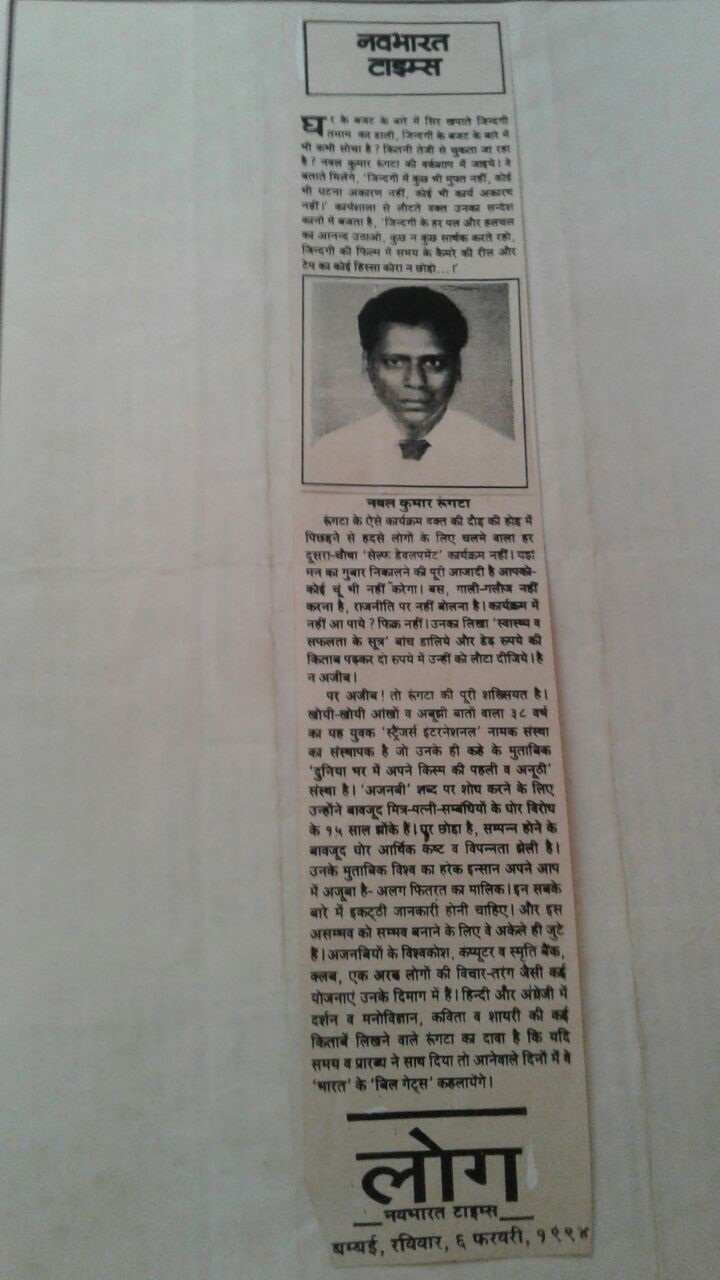 नवभारत
टाइम्स
घर के बजट के बारे में सिर खपाते जिन्दगी
तमाम कर डाली, जिन्दगी के बजट के बारे में
भी कभी सोचा है? कितनी तेजी से चुकता जा रहा
है? नवल कुमार रूंगटा की वर्कशाप में जाइये। वे
बताते मिलेंगे, 'जिन्दगी में कुछ भी मुफ्त नहीं, कोई
भी घटना अकारण नहीं, कोई भी कार्य अकारथ
नहीं।' कार्यशाला से लौटते वक्त उनका सन्देश
कानों में बजता है, 'जिन्दगी के हर पल और हलचल
का आनन्द उठाओ, कुछ न कुछ सार्थक करते रहो,
जिन्दगी की फिल्म में समय के कैमरे की रील और
टेप का कोई हिस्सा कोरा न छोड़ो...।'
नवल कुमार रूंगटा
रूंगटा के ऐसे कार्यक्रम वक्त की दौड़ की होड़ में
पिछड़ने से हदसे लोगों के लिए चलने वाला हर
दूसरा-चौथा 'सेल्फ डेवलपमेंट' कार्यक्रम नहीं। यहां
मन का गुबार निकालने की पूरी आजादी है आपको-
कोई चूं भी नहीं करेगा। बस, गाली-गलौज नहीं
करना है, राजनीति पर नहीं बोलना है। कार्यक्रम में
नहीं आ पाये? फिक्र नहीं। उनका लिखा 'स्वास्थ्य व
सफलता के सूत्र' बांच डालिये और डेढ़ रुपये की
किताब पढ़कर दो रुपये में उन्हीं को लौटा दीजिये। है
न अजीब।
पर अजीब! तो रूंगटा की पूरी शख्सियत है।
खोयी-खोयी आंखों व अबूझी बातों वाला ३८ वर्ष
का यह युवक 'स्ट्रैंजर्स इंटरनेशनल' नामक संस्था
का संस्थापक है जो उनके ही कहे के मुताबिक
'दुनिया भर में अपने किस्म की पहली व अनूठी'
संस्था है। 'अजनबी' शब्द पर शोध करने के लिए
उन्होंने बावजूद मित्र-पत्नी-सम्बंधियों के घोर विरोध
के १५ साल झोंके हैं। घर छोड़ा है, सम्पन्न होने के
बावजूद घोर आर्थिक कष्ट व विपन्नता झेली है।
उनके मुताबिक विश्व का हरेक इन्सान अपने आप
में अजूबा है- अलग फितरत का मालिक। इन सबके
बारे में इकट्ठी जानकारी होनी चाहिए। और इस
असम्भव को सम्भव बनाने के लिए वे अकेले ही जुटे
हैं। अजनबियों के विश्वकोश, कम्प्यूटर व स्मृति बैंक,
क्लब, एक अरब लोगों की विचार-तरंग जैसी कई
योजनाएं उनके दिमाग में हैं। हिन्दी और अंग्रेजी में
दर्शन व मनोविज्ञान, कविता व शायरी की कई
किताबें लिखने वाले रूंगटा का दावा है कि यदि
समय व प्रारब्ध ने साथ दिया तो आनेवाले दिनों में वे
'भारत' के 'बिल गेट्स' कहलायेंगे।
लोग
नवभारत टाइम्स
बम्बई, रविवार, ६ फरवरी, १९९४